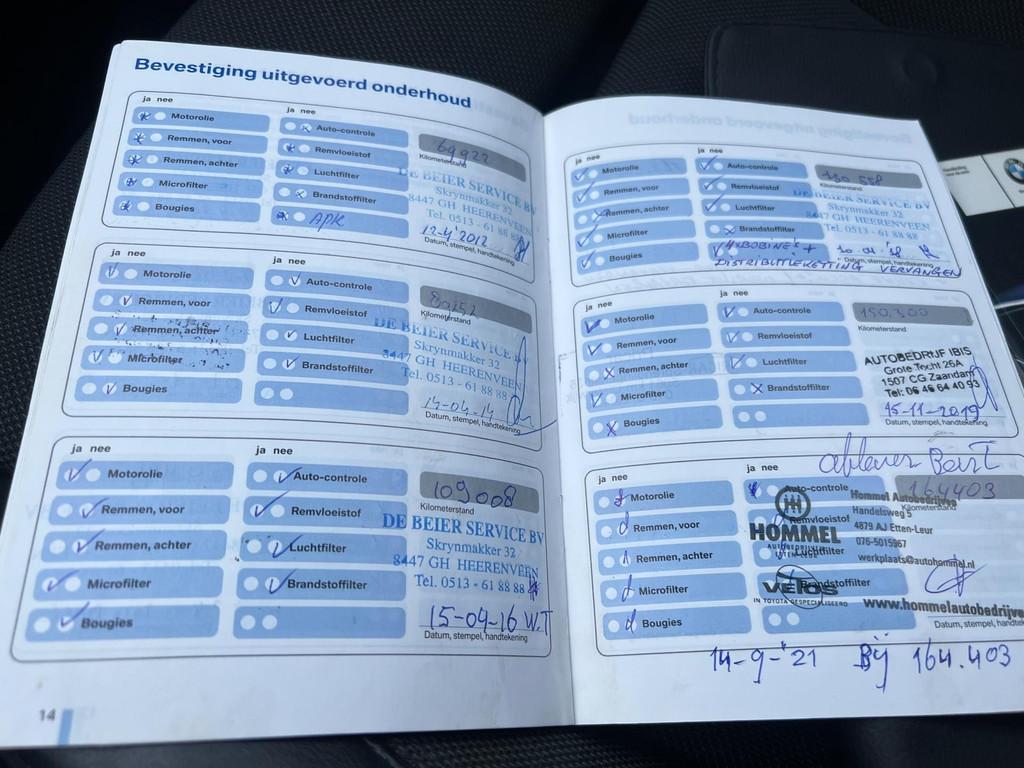 Bevestiging uitgevoerd onderhoud
ja nee
ja nee
Motorolie
Auto-controle
69922
Kilometerstand
Remmen, voor
Remvloeistof
Remmen, achter
Luchtfilter
DE BEIER SERVICE BV
Skrynmakker 32
8447 GH HEERENVEEN
Tel. 0513 - 61 88 88
Microfilter
Brandstoffilter
Bougies
APK
12-4'2012
Datum, stempel, handtekening
ja nee
ja nee
Motorolie
Auto-controle
89252
Kilometerstand
Remmen, voor
Remvloeistof
Remmen, achter
Luchtfilter
DE BEIER SERVICE BV
Skrynmakker 32
8447 GH HEERENVEEN
Tel. 0513 - 61 88 88
Microfilter
Brandstoffilter
Bougies
14-04-14
Datum, stempel, handtekening
ja nee
ja nee
Motorolie
Auto-controle
109008
Kilometerstand
Remmen, voor
Remvloeistof
Remmen, achter
Luchtfilter
DE BEIER SERVICE BV
Skrynmakker 32
8447 GH HEERENVEEN
Tel. 0513 - 61 88 88
Microfilter
Brandstoffilter
Bougies
15-04-16 W.T
Datum, stempel, handtekening
14
ja nee
ja nee
Motorolie
Auto-controle
130 558
Kilometerstand
Remmen, voor
Remvloeistof
Remmen, achter
Luchtfilter
DE BEIER SERVICE BV
Skrynmakker 32
8447 GH HEERENVEEN
Tel. 0513 - 61 88 88
Microfilter
Brandstoffilter
Bougies
4x BOBINE's +
DISTRIBUTIEKETTING VERVANGEN
Datum, stempel, handtekening
ja nee
ja nee
Motorolie
Auto-controle
150,300
Kilometerstand
Remmen, voor
Remvloeistof
Remmen, achter
Luchtfilter
AUTOBEDRIJF IBIS
Grote Tocht 26A
1507 CG Zaandam
Tel: 06 46 64 40 93
Microfilter
Brandstoffilter
Bougies
15-11-2019
Datum, stempel, handtekening
ja nee
ja nee
Motorolie
Auto-controle
164403
Kilometerstand
Remmen, voor
Remvloeistof
Remmen, achter
Luchtfilter
HOMMEL
Hommel Autobedrijven
Handelsweg 5
4879 AJ Etten-Leur
076-5015967
werkplaats@autohommel.nl
Microfilter
Brandstoffilter
VeTos
IN TOYOTA GESPECIALISEERD
www.hommelautobedrijve
Bougies
Datum, stempel, handtekening
14-9-'21 Bij 164.403